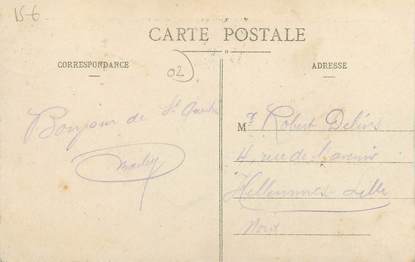 15€
CARTE POSTALE
CORRESPONDANCE
02
ADRESSE
Bonjour de St Quentin
Mr Robert
4 rue de l'avenir
Hellemmes-Lille
Nord